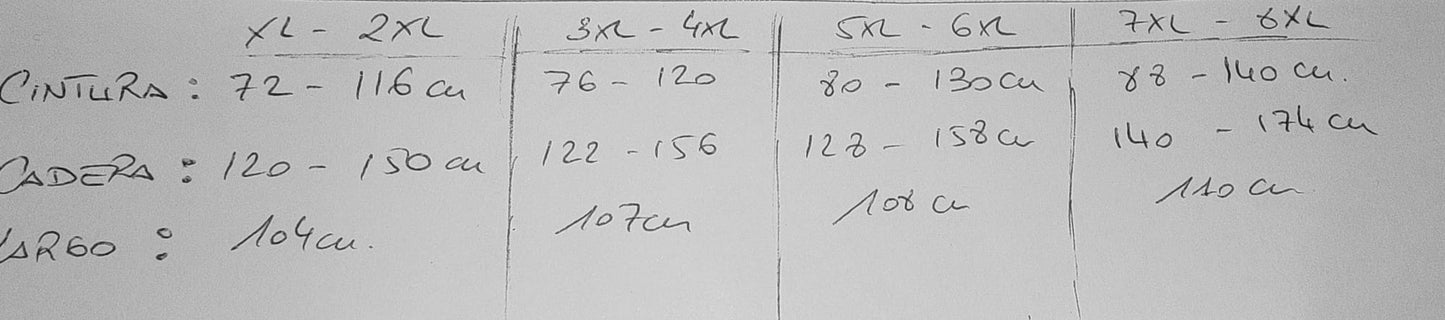 XL - 2XL 3XL - 4XL 5XL - 6XL 7XL - 8XL
CINTURA: 72 - 116 cm 76 - 120 80 - 130 cm 88 - 140 cm.
CADERA: 120 - 150 cm 122 - 156 128 - 158 cm 140 - 174 cm
LARGO: 104 cm. 107 cm 108 cm 110 cm